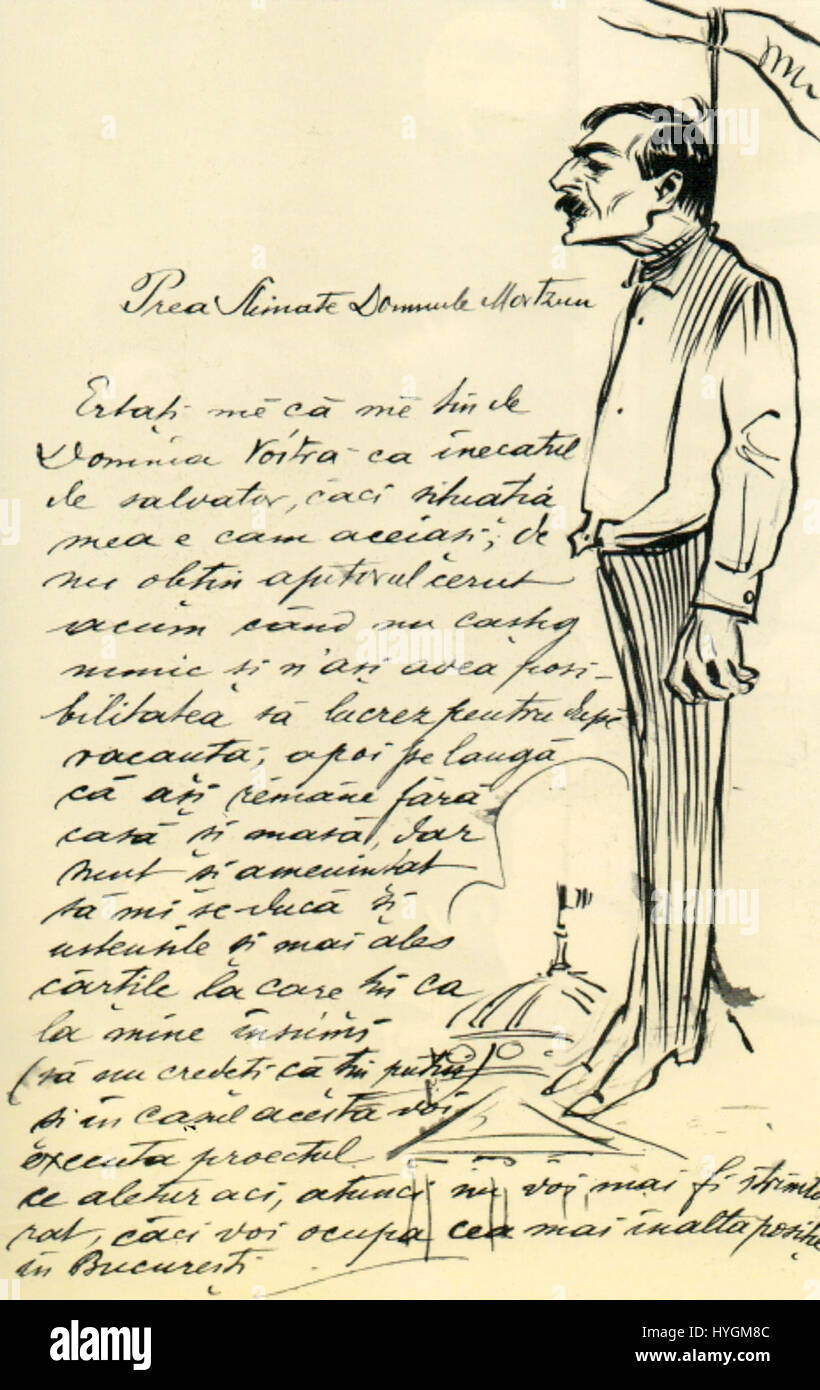 Prea Stimate Domnule Mortzun
Ertați mĕ că mĕ țin de
Domnia Vostra ca înecatul
de salvator, căci situația
mea e cam aceiași; de
nu obțin ajutorul cerut
acum când nu castig
nimic și n'ași avea posi-
bilitatea să lucrez pentru după
vacanta, apoi pe langă
că ași rĕmâne fără
casă și masă, dar
sunt și amenintat
să mi se ducă și
ustensile și mai ales
cărtile la care țin ca
la mine însumi
(să nu credeți că țin puțin)
și în casul acesta voi
executa proectul
ce aletur aci, atunci nu voi mai fi strimto
rat, căci voi ocupa cea mai inalta positie
in București
alamy
a
a
a
a
a
alamy
alamy
a
a
alamy stock photo
HYGM8C
www.alamy.com